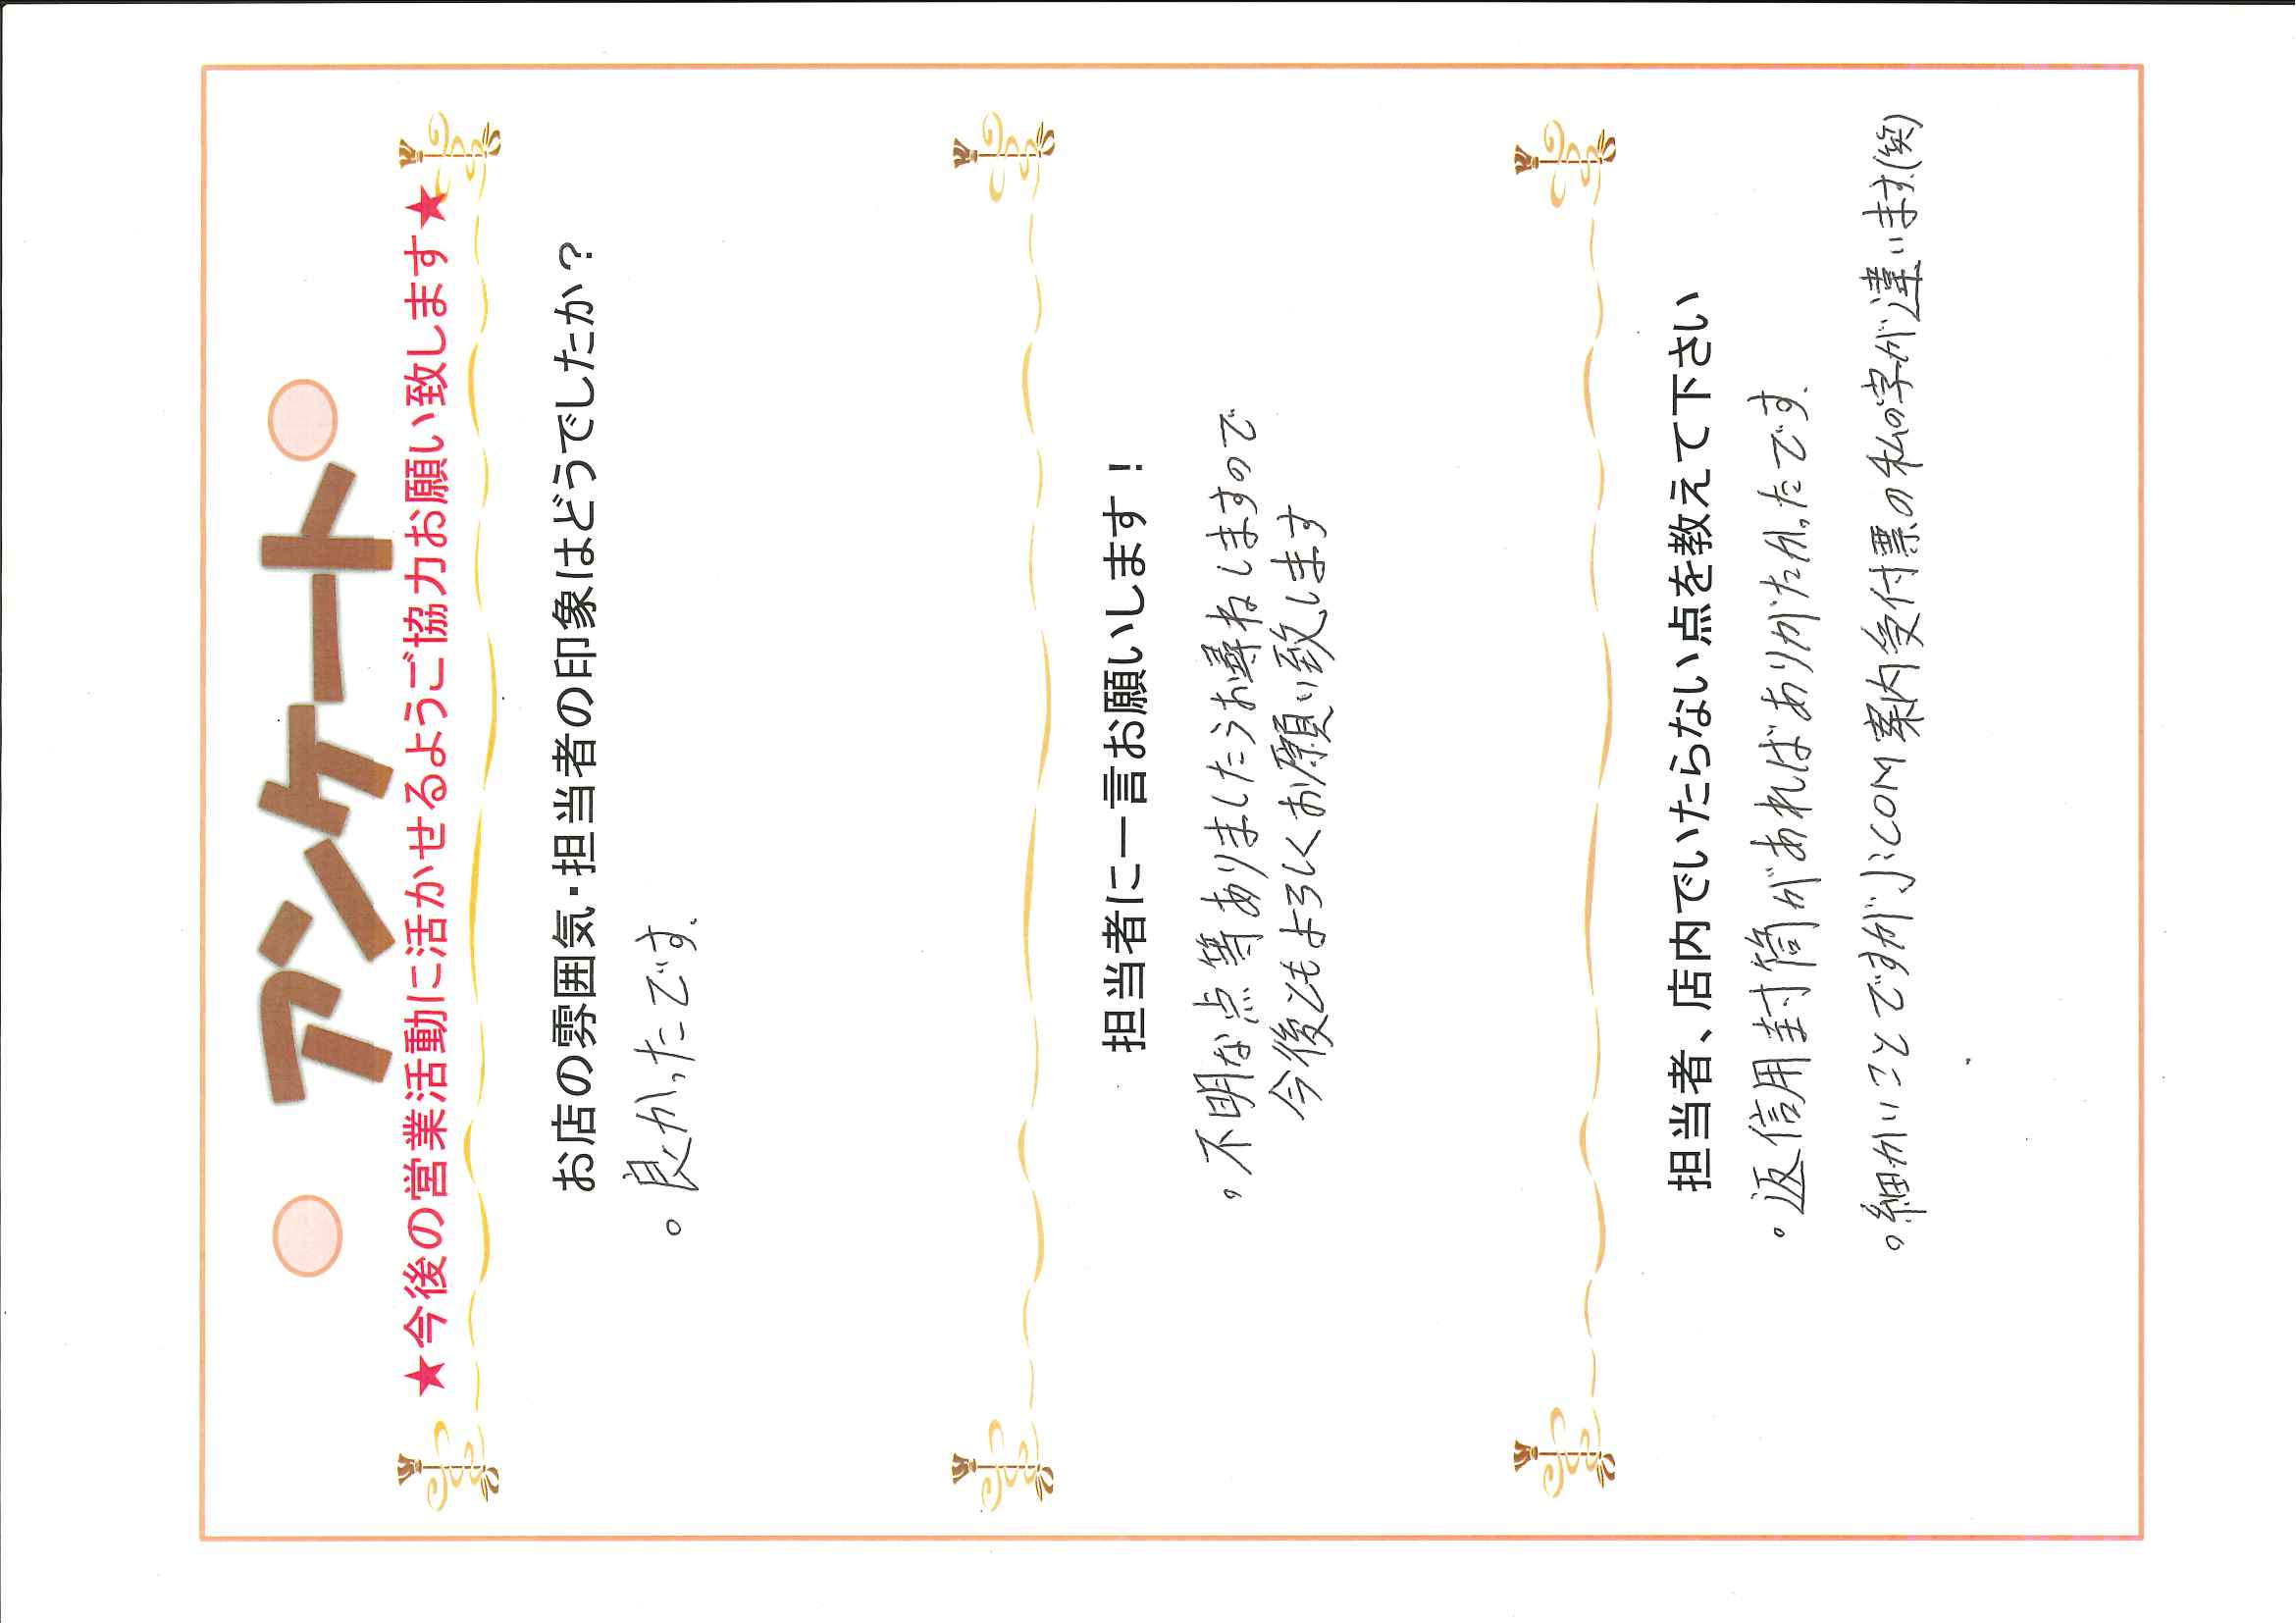 アンケート
★今後の営業活動に活かせるようご協力お願い致します★
お店の雰囲気・担当者の印象はどうでしたか？
。良かったです.
担当者に一言お願いします！
。不明な点等ありましたらお尋ねしますので
今後ともよろしくお願い致します
担当者、店内でいたらない点を教えて下さい
。返信用封筒があればありがたかったです.
。細かいことですがJ:COM案内受付票の私の字が違います.(笑)